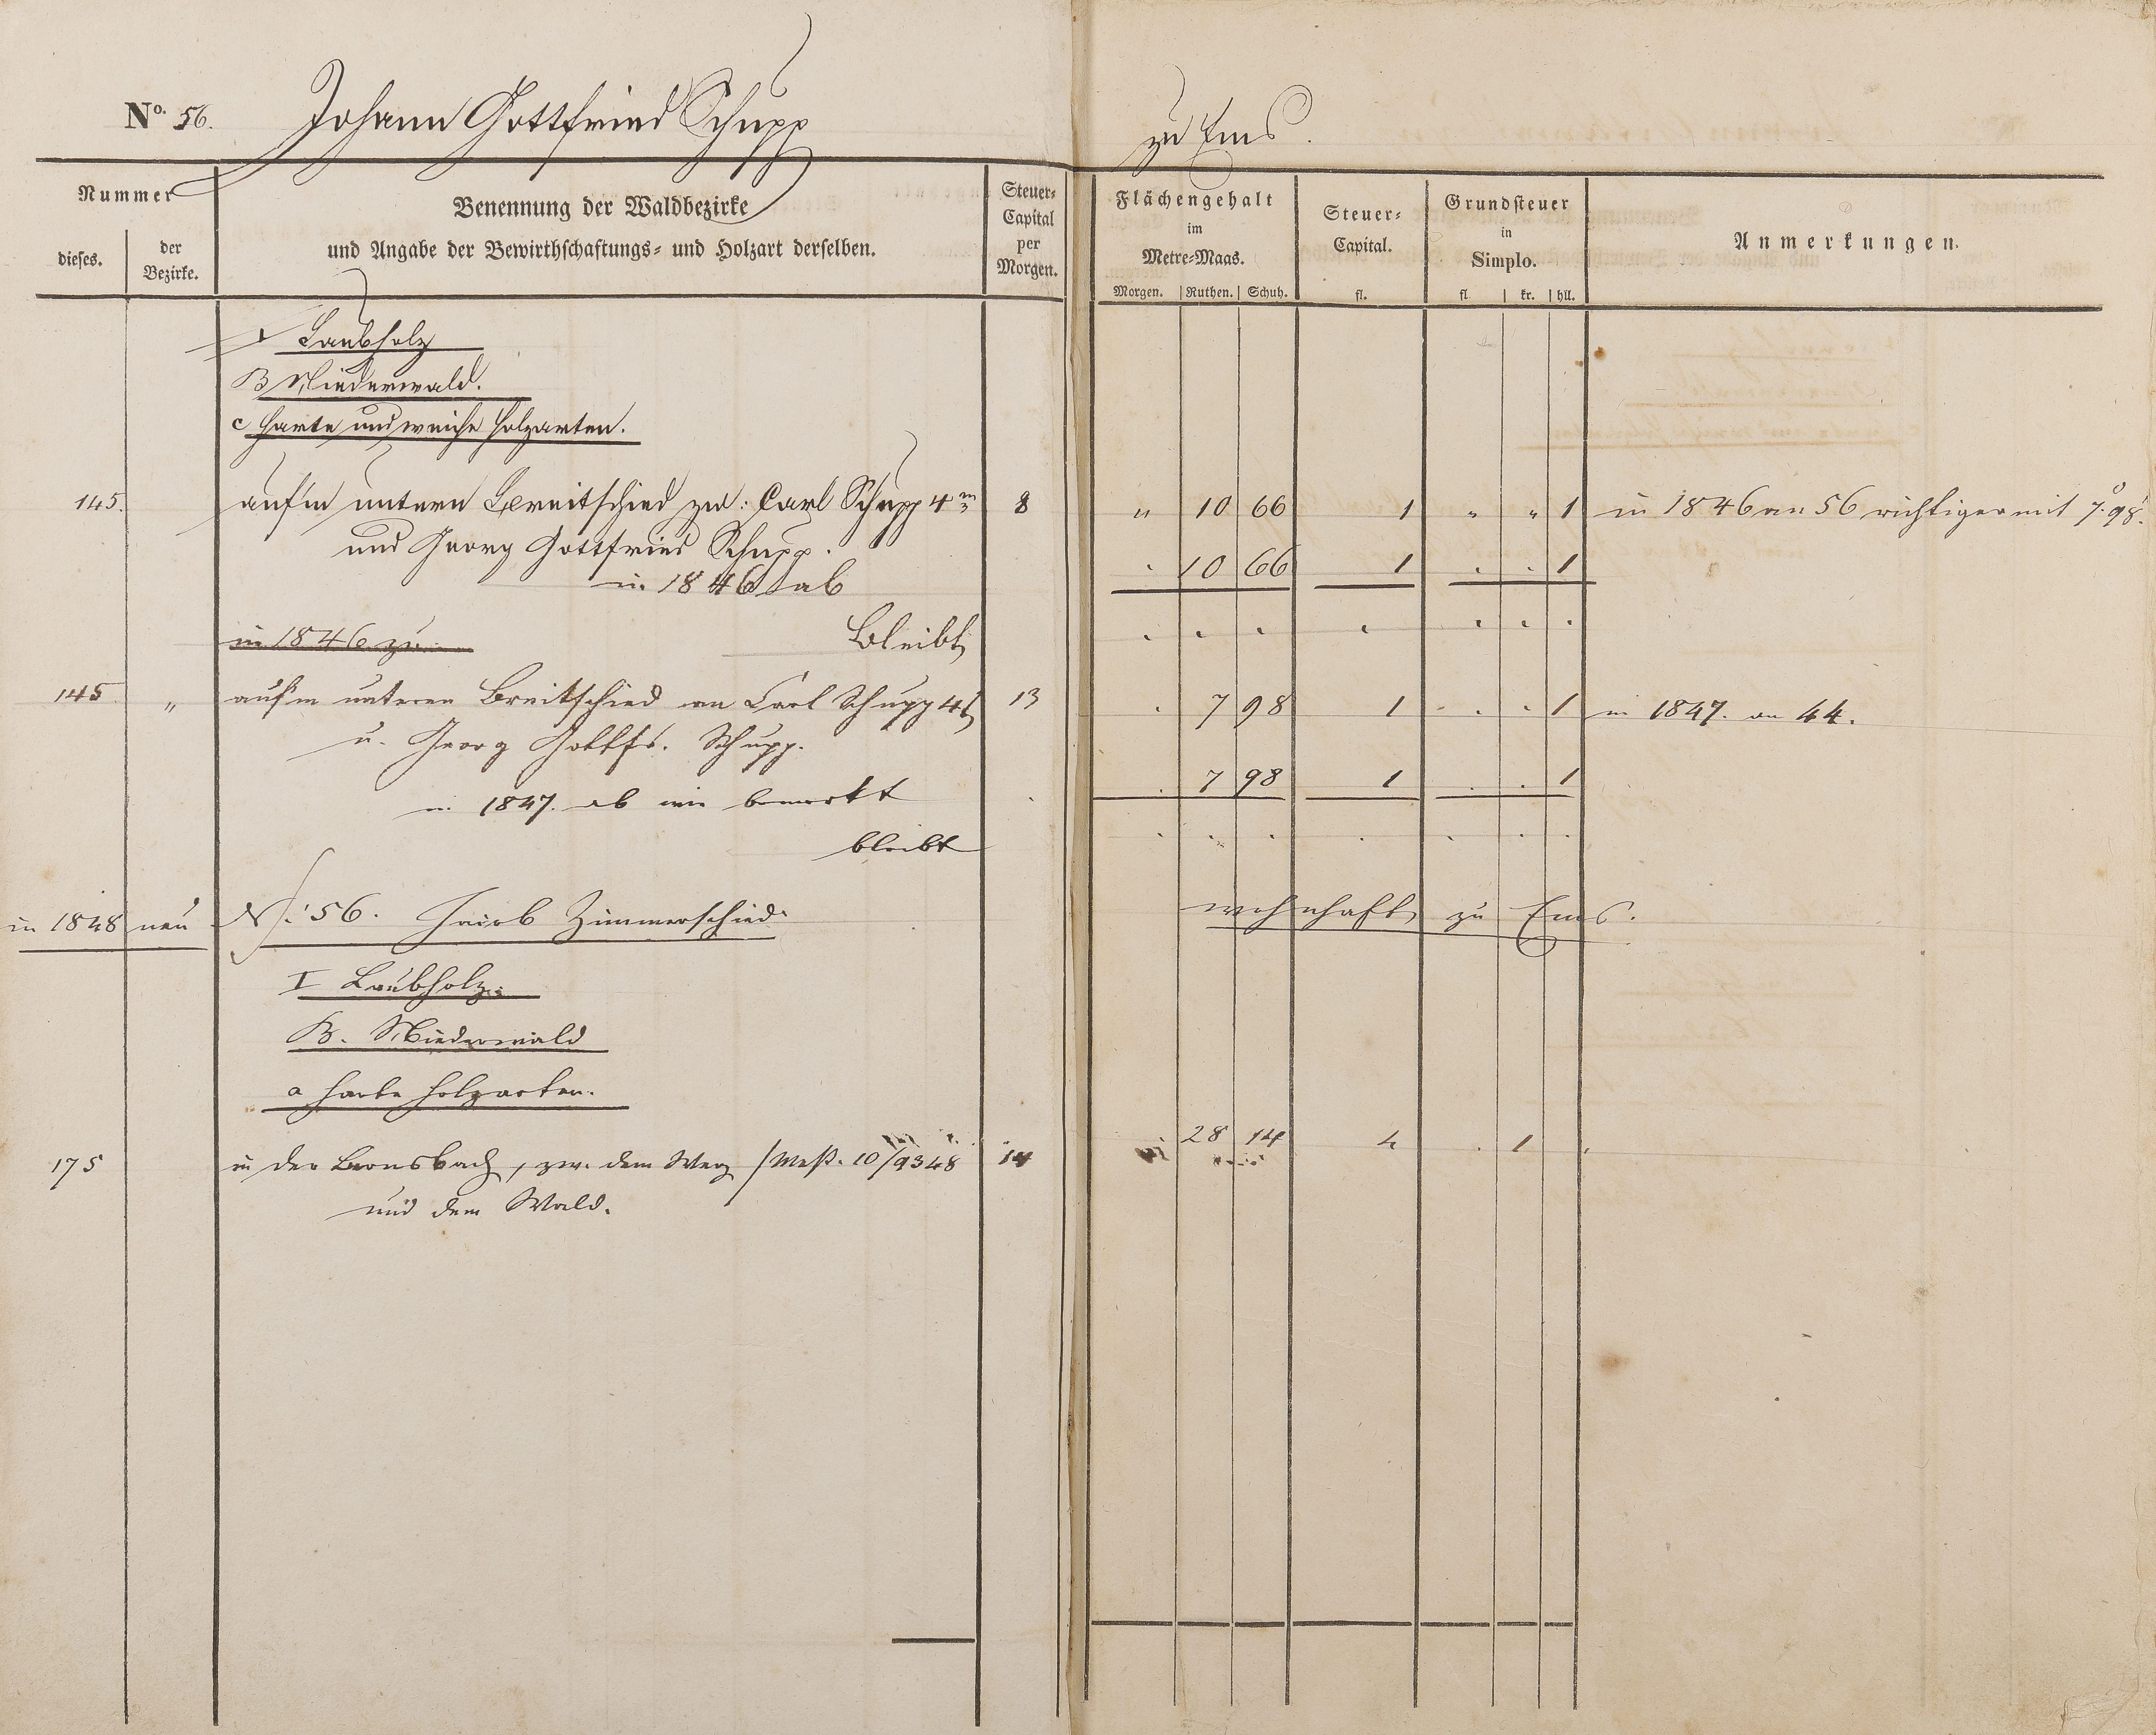 No. 56. Johann Gottfried Schupp zu Ems.
Nummer
dieses.
der Bezirke.
Benennung der Waldbezirke
und Angabe der Bewirthschaftungs- und Holzart derselben.
Steuer-
Capital
per
Morgen.
Flächengehalt
im
Metre-Maas.
Morgen. Ruthen. Schuh.
Steuer-
Capital.
fl.
Grundsteuer
in
Simplo.
fl. kr. hll.
Anmerkungen.
I Laubholz
B Niederwald.
c harte und weiche Holzarten.
145. auf'm untern Breitschied zw: Carl Schupp 4 8 " 10 66 1 " " 1 in 1846 an 56 richtiger mit 7.° 98.'
und Georg Gottfried Schupp.
in 1846 ab . 10 66 1 . . 1
in 1846 zu
bleibt . . . . . . .
145 " auf'm unteren Breitschied an Carl Schupp 13 . 7 98 1 . . 1 in 1847. an 44.
u. Georg Gottfr. Schupp.
in 1847. ab wie bemerkt . 7 98 1 . . 1
bleibt . . . . . . .
in 1848 neu N. 56. Jacob Zimmerschied wohnhaft zu Ems.
I Laubholz.
B. Niederwald
a harte Holzarten.
175 in der Braunsbach, zw. dem Weg /Meß. 10/9348 14 28 14 4 . 1 .
und dem Wald.